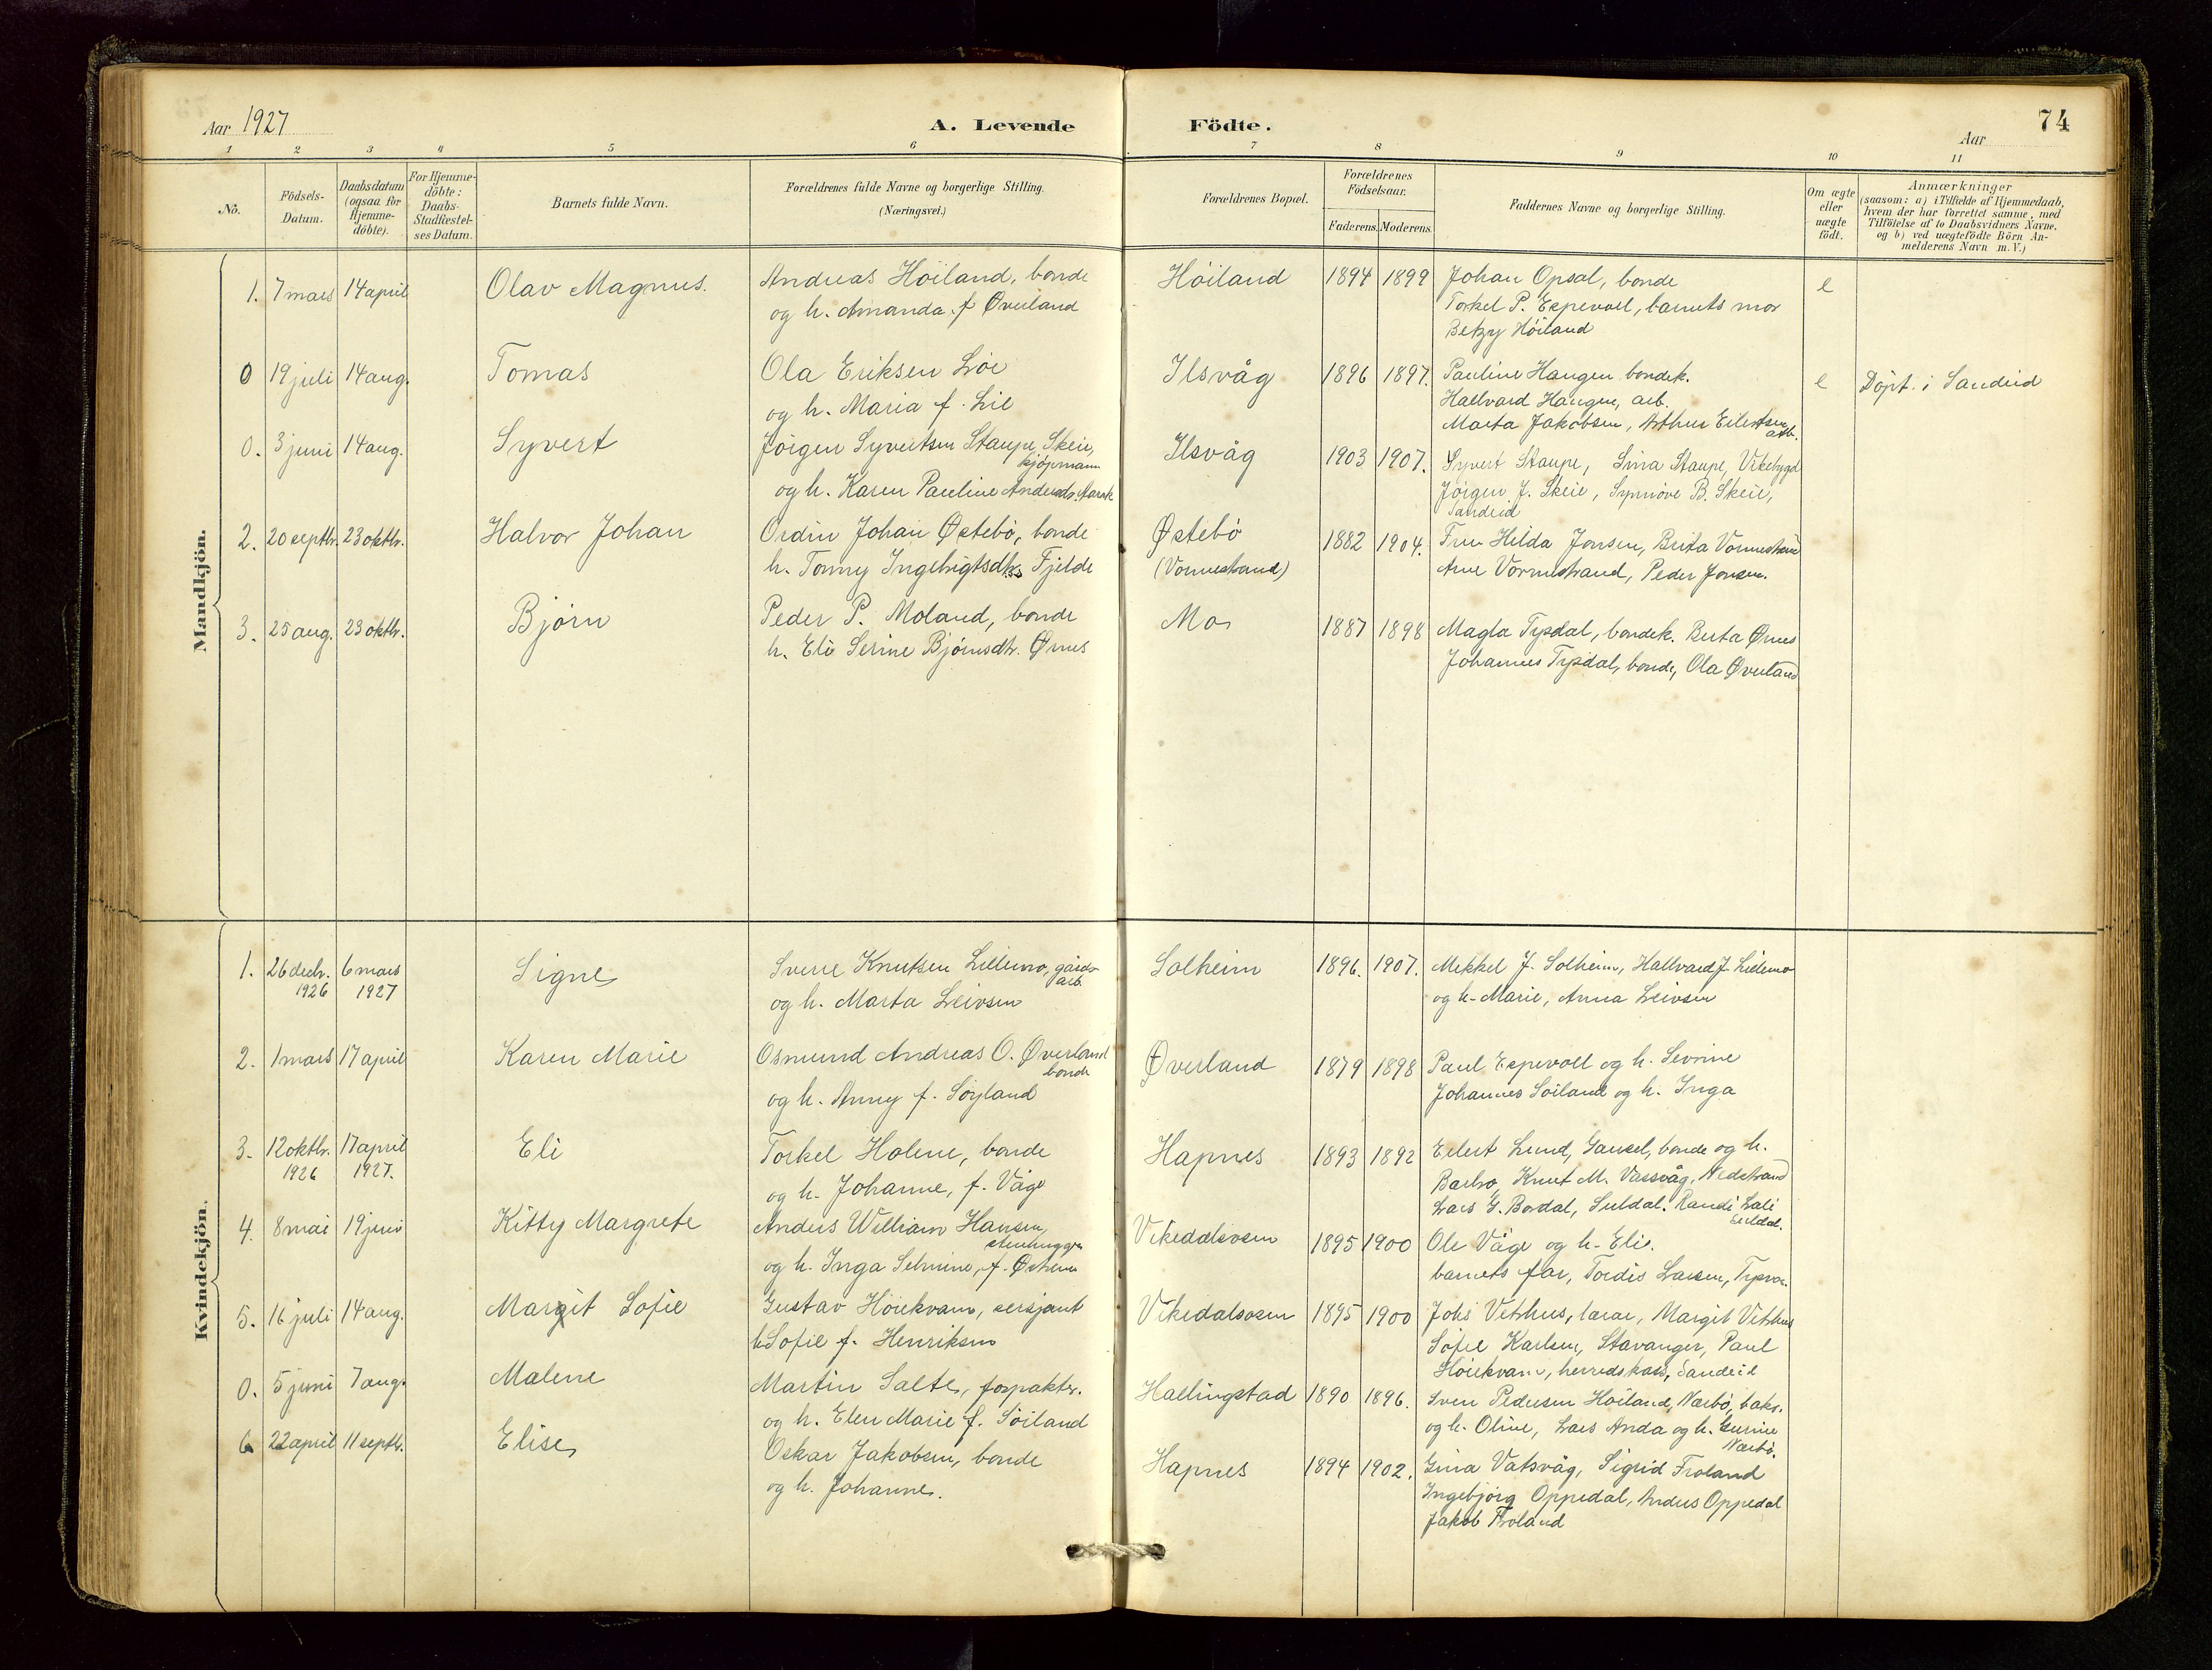 Aar 1927
A. Levende
Födte.
Aar
74
1 2 3 4 5 6 7 8 9 10 11
No.
Födsels-Datum.
Daabsdatum (ogsaa for Hjemme-döbte).
For Hjemme-döbte: Daabs-Stadfæstel-ses Datum.
Barnets fulde Navn.
Forældrenes fulde Navne og borgerlige Stilling.
(Næringsvei.)
Forældrenes Bopæl.
Forældrenes Födselsaar.
Faderens. Moderens.
Faddernes Navne og borgerlige Stilling.
Om ægte eller uægte födt.
Anmærkninger
(saasom: a) i Tilfælde af Hjemmedaab,
hvem der har forrettet samme, med
Tilföielse af to Daabsvidners Navne.
og b) ved uægtefödte Börn An-
melderens Navn m. V.)
Mandkjön.
1. 7 mars 14 april Olav Magnus. Andreas Høiland, bonde Høiland 1894 1899 Johan Opsal, bonde e
og h. Amanda f Øverland Torkel P. Espevoll, barnets mor
Betzy Høiland
0 19 juli 14 aug. Tomas Ola Eriksen Løe Ilsvåg 1896 1897. Pauline Haugen bondek. e Døpt i Sandeid
og h. Maria f. Lie Hallvard Haugen, arb.
Marta Jakobsen, Arthur Eilertsen arb.
0. 3 juni 14 aug. Syvert Jørgen Syvertsen Staupe, Skeie, kjøpmann Ilsvåg 1903 1907. Syvert Staupe, Lina Staupe, Vikebygd
og h. Karen Pauline Andersdr. Jørgen J. Skeie, Synnöve B. Skeie,
Sandeid
2. 20 septbr. 23 oktbr. Halvor Johan Ordin Johan Østebø, bonde Østebø 1882 1904. Fru Hilda Jonsen, Brita Vormestrand
h. Tonny Ingebrigtsdtr. Fjelde (Vormestrand) Arne Vormestrand, Peder Jonsen.
3. 25 aug. 23 oktbr. Bjørn Peder P. Moland, bonde Mo 1887 1898 Magla Tysdal, bondek. Berta Ørnes
h. Eli Serine Bjørnsdtr. Ørnes Johannes Tysdal, bonde, Ola Øverland
Kvindekjön.
1. 26 decbr. 1926 6 mars 1927 Signe Sverre Knutsen Lillemo, gårds-arb. Solheim 1896. 1907. Mikkel J. Solheim, Hallvard J. Lillemo
og h. Marta Leivsen og h. Marie, Anna Leivsen
2. 1 mars 17 april Karen Marie Osmund Andreas O. Øverland bonde Øverland 1879 1898 Paul Espevoll og h. Sevrine
og h. Anny f. Søyland Johannes Søiland og h. Inga
3. 12 oktbr. 1926 17 april 1927. Eli Torkel Holene, bonde Hapnes 1893 1892 Eilert Lund, Gausel, bonde og h.
og h. Johanne, f. Våge Barbro, Knut M. Vassvåg, Nedstrand
Lars G. Bordal, Suldal. Randi Lali Suldal.
4. 8 mai 19 juni Kitty Margrete Anders William Hansen, stenhugger Vikedalsosen 1895 1900 Ole Våge og h. Eli.
og h. Inga Selmine, f. Østrem barnets far, Tordis Larsen, Tysvær.
5. 16 juli 14 aug. Margit Sofie Gustav Høiekvam, sersjant Vikedalsosen 1895 1900 Johs Vetrhus, lærar, Margit Vetrhus
h. Sofie f. Henriksen Sofie Karlsen, Stavanger, Paul
Høiekvam, herredskass, Sandeid
0. 5 juni 7 aug. Malene Martin Salte, forpaktr. Hallingstad 1890 1896. Sven Pedersen Høiland, Nærbø, baker.
og h. Elen Marie f. Søiland og h. Oline, Lars Anda og h. Gurine
Nærbø.
6 22 april 11 septbr. Elise Oskar Jakobsen, bonde Hapnes 1894 1902. Gina Vatsvåg, Sigrid Froland
og h. Johanne. Ingebjørg Oppedal, Anders Oppedal
Jakob Froland